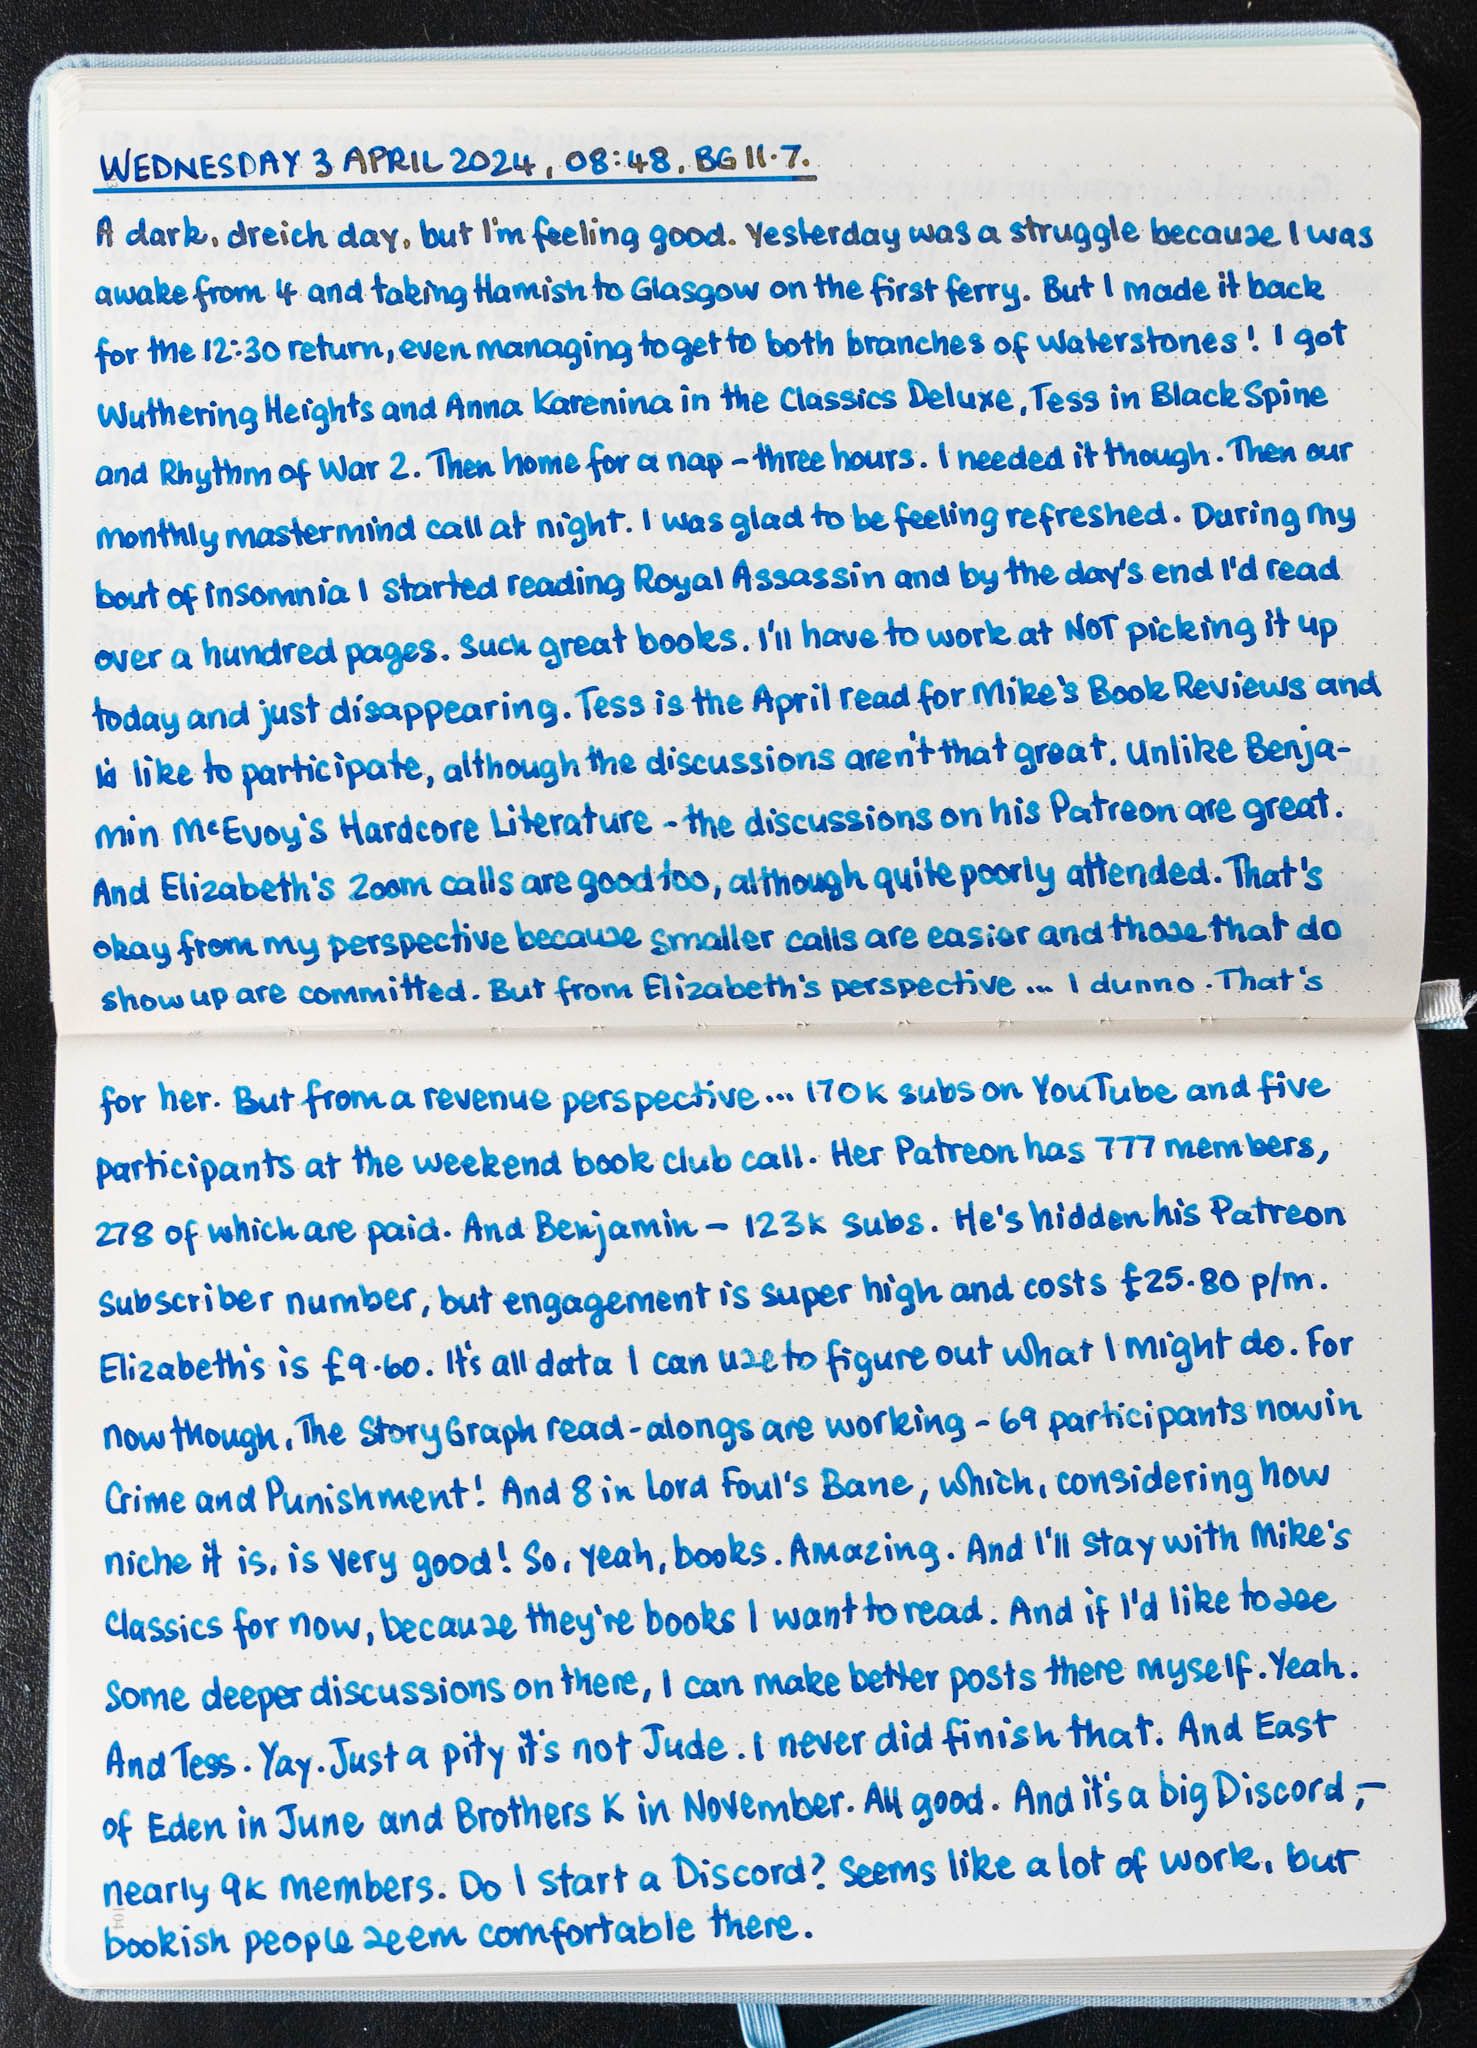 WEDNESDAY 3 APRIL 2024, 08:48, BG 11.7.
A dark, dreich day, but I'm feeling good. Yesterday was a struggle because I was
awake from 4 and taking Hamish to Glasgow on the first ferry. But I made it back
for the 12:30 return, even managing to get to both branches of Waterstones! I got
Wuthering Heights and Anna Karenina in the Classics Deluxe, Tess in Black Spine
and Rhythm of War 2. Then home for a nap – three hours. I needed it though. Then our
monthly mastermind call at night. I was glad to be feeling refreshed. During my
bout of insomnia I started reading Royal Assassin and by the day's end I'd read
over a hundred pages. Such great books. I'll have to work at NOT picking it up
today and just disappearing. Tess is the April read for Mike's Book Reviews and
like to participate, although the discussions aren't that great. Unlike Benja-
min McEvoy's Hardcore Literature – the discussions on his Patreon are great.
And Elizabeth's Zoom calls are good too, although quite poorly attended. That's
okay from my perspective because smaller calls are easier and those that do
show up are committed. But from Elizabeth's perspective... I dunno. That's
for her. But from a revenue perspective... 170K subs on YouTube and five
participants at the weekend book club call. Her Patreon has 777 members,
278 of which are paid. And Benjamin – 123K subs. He's hidden his Patreon
subscriber number, but engagement is super high and costs £25.80 p/m.
Elizabeth's is £9.60. It's all data I can use to figure out what I might do. For
now though, The StoryGraph read-alongs are working – 69 participants now in
Crime and Punishment! And 8 in Lord Foul's Bane, which, considering how
niche it is, is very good! So, yeah, books. Amazing. And I'll stay with Mike's
Classics for now, because they're books I want to read. And if I'd like to see
some deeper discussions on there, I can make better posts there myself. Yeah.
And Tess. Yay. Just a pity it's not Jude. I never did finish that. And East
of Eden in June and Brothers K in November. All good. And it's a big Discord, –
nearly 9K members. Do I start a Discord? Seems like a lot of work, but
bookish people seem comfortable there.
104